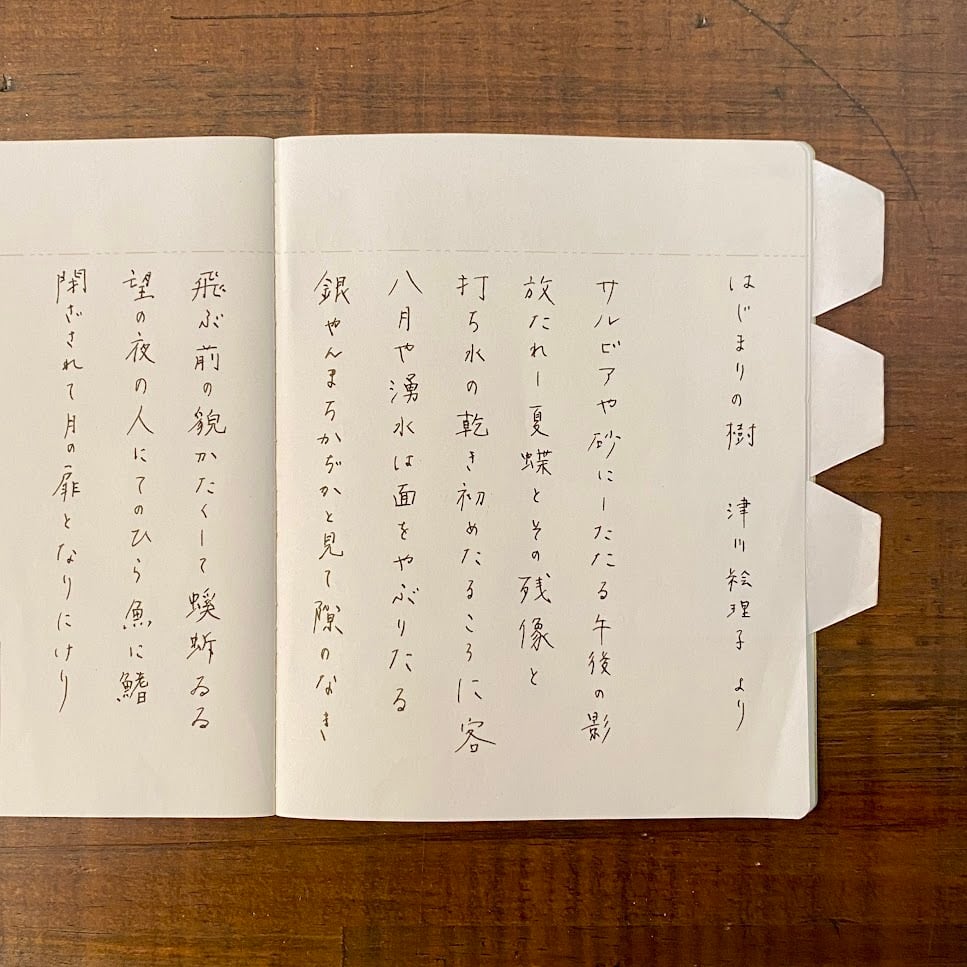 はじまりの樹　津川絵理子 より
サルビアや砂にしたたる午後の影
放たれし夏蝶とその残像と
打ち水の乾き初めたるころに客
八月や湧水は面をやぶりたる
銀やんまろかぢかと見て隙のなき
飛ぶ前の貌かたくして螇蚸ゐる
望の夜の人にてのひら魚に鰭
閉ざされて月の扉となりにけり